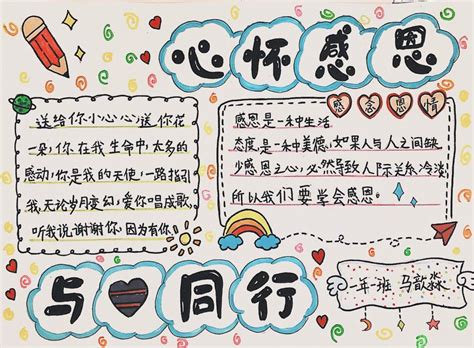 心怀感恩
感念恩情
送给你小心心送你花
一朵,你在我生命中,太多的
感动,你是我的天使,一路指引
我,无论岁月变幻,爱你唱成歌,
听我说谢谢你,因为有你
感恩是一种生活
态度,是一种美德,如果人与人之间缺
少感恩之心,必然导致人际关系冷淡,
所以我们要学会感恩.
与 同行
一年一班 马歆淼